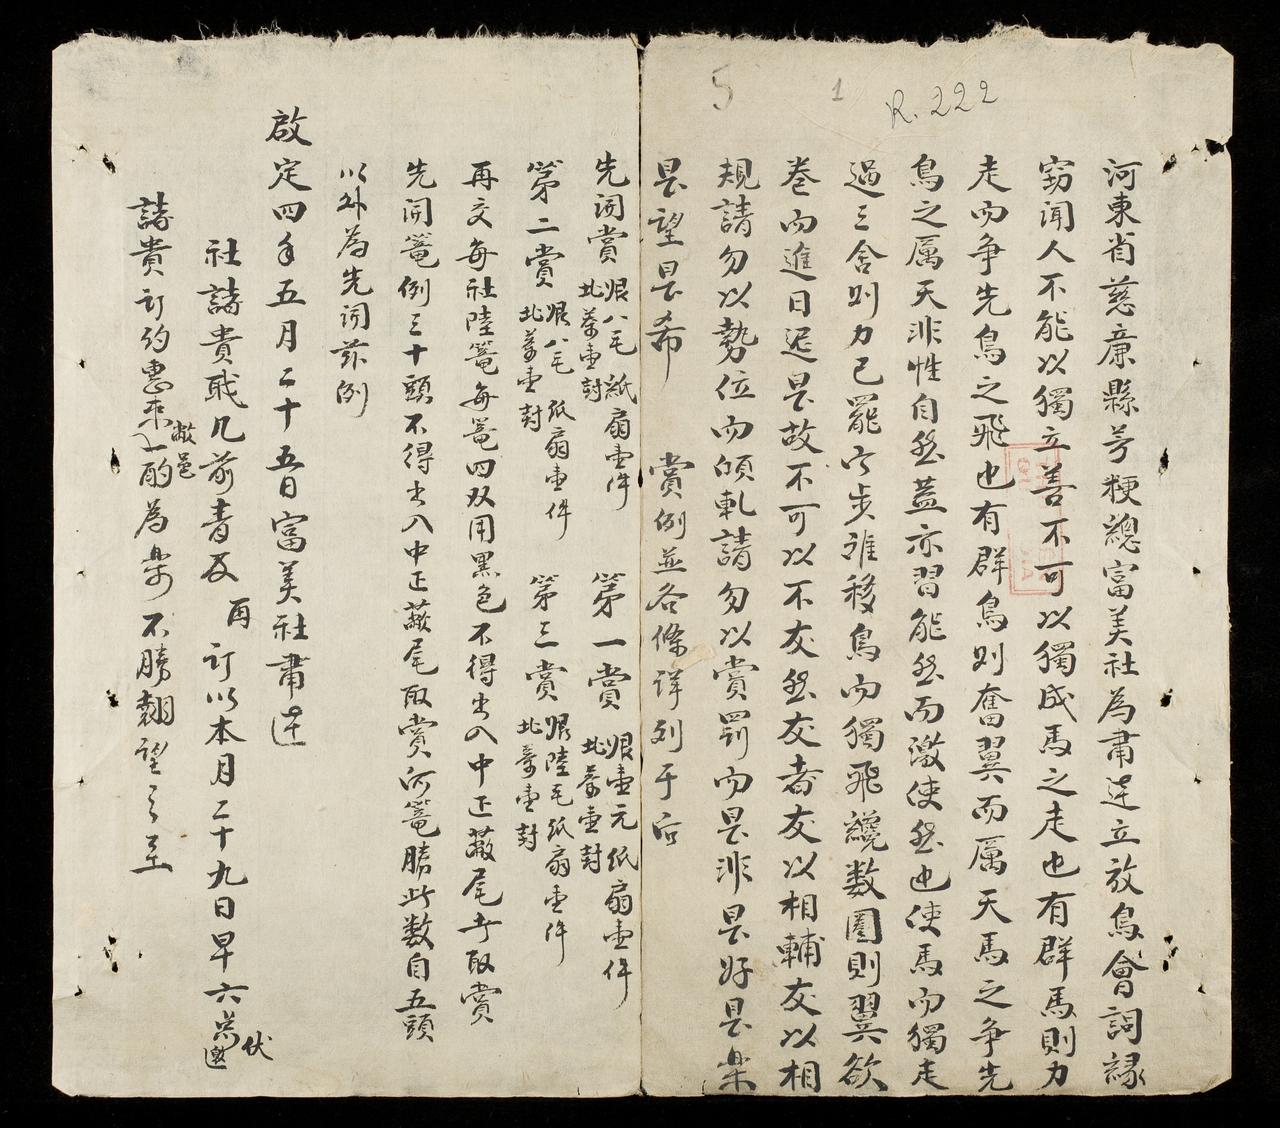 R. 222
1
5
河東省慈廉縣芳粳總富美社為肅迬立放鳥會詞緣
窃闻人不能以獨立善不可以獨成馬之走也有群馬則力
走而争先鳥之飛也有群鳥则奮翼而厲天馬之争先
鳥之厲天非性自然蓋亦習能然而激使然也使馬而獨走
過三舍则力已罷宁步誰移鳥而獨飛纔数圈則翼欲
卷而進日迟是故不可以不友然友者友以相輔友以相
規請勿以勢位而傾軋請勿以賞罰而是非是好是楽
是望是希　賞例並各條详列于后
先词賞 銀八毛紙扇壹件 北茶壹封　第一賞 銀壹元纸扇壹件 北茶壹封
第二賞 銀八毛纸扇壹件 北茶壹封　第三賞 銀陸毛纸扇壹件 北茶壹封
再交每社陸篭每篭四双用黑色不得出入中正蔽尾才取賞
先闭篭例三十頭不得出入中正蔽尾取賞何篭勝此数自五頭
以外為先词玆例
啟定四年五月二十五日富美社肅迬
社諸貴戝几前青及 再 订以本月二十九日早六 伏
諸貴订约惠来 敝邑 一酌為楽不勝翹望之至